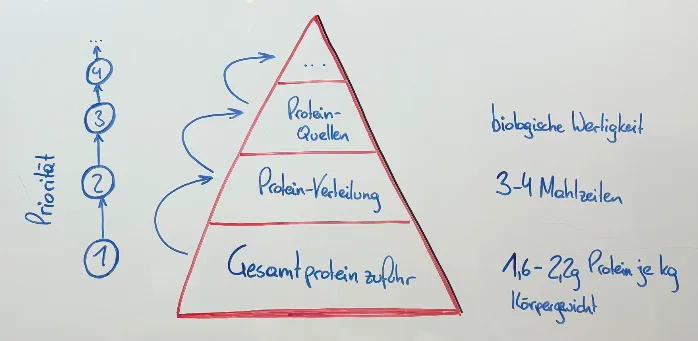 ...
4
3
2
1
Priorität
...
Protein-
Quellen
Protein-Verteilung
Gesamtproteinzufuhr
biologische Wertigkeit
3-4 Mahlzeiten
1,6-2,2g Protein je kg
Körpergewicht